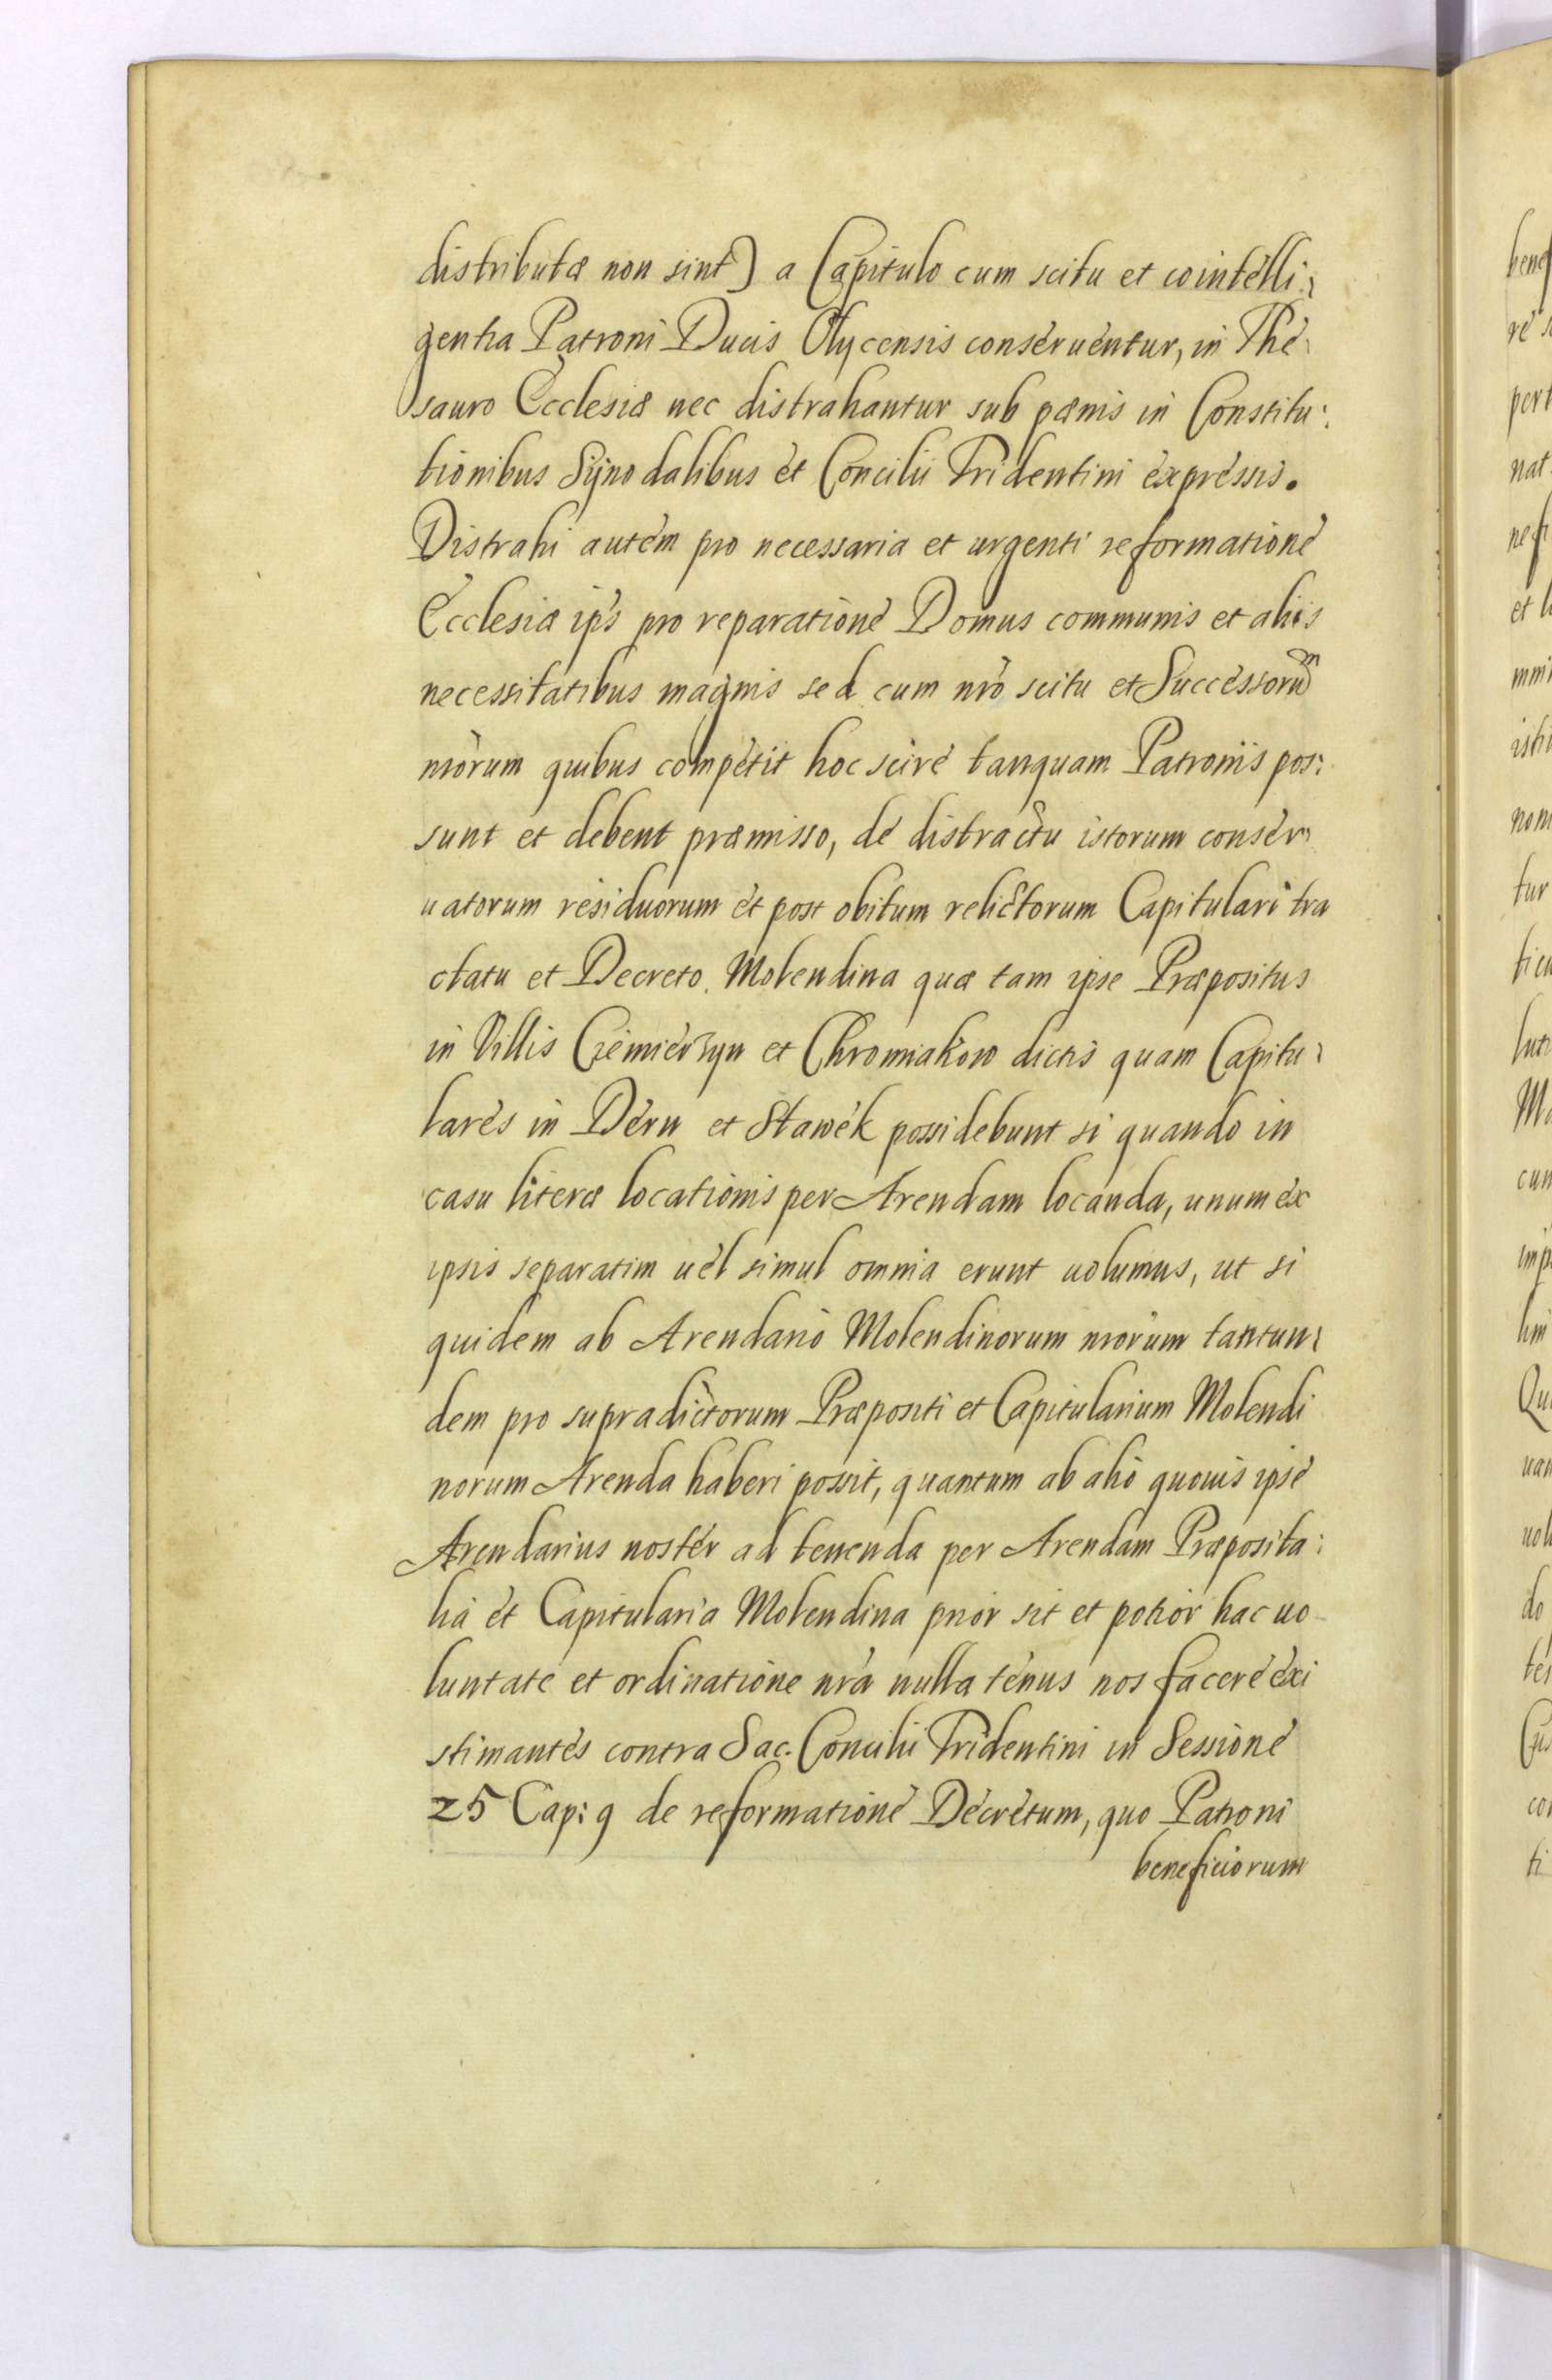 distributæ non sint) a Capitulo cum scitu et cointelli:
gentia Patroni Ducis Olycensis conseruentur, in The
sauro Ecclesiæ nec distrahantur sub pænis in Constitu:
tionibus Synodalibus et Concilii Tridentini expressis.
Distrahi autem pro necessaria et urgenti reformatione
Ecclesiæ ips pro reparatione Domus communis et aliis
necessitatibus magnis sed cum nro scitu et Successorum
nrorum quibus competit hoc scire tanquam Patronis pos:
sunt et debent præmisso, de distractu istorum conser
uatorum residuorum et post obitum relictorum Capitulari tra
ctatu et Decreto. Molendina quæ tam ipse Præpositus
in Villis Czemierzyn et Chromiakow dictis quam Capitu
lares in Dern et Stawek possidebunt si quando in
casu literæ locationis per Arendam locanda, unum ex
ipsis separatim uel simul omnia erunt uolumus, ut si
quidem ab Arendario Molendinorum nrorum tantun
dem pro supradictorum Præpositi et Capitularium Molendi
norum Arenda haberi possit, quantum ab alio quouis ipse
Arendarius noster ad tenenda per Arendam Præposita:
lia et Capitularia Molendina prior sit et potior hac uo
luntate et ordinatione nra nulla tenus nos facere exi
stimantes contra Sac. Concilii Tridentini in Sessione
25 Cap: 9 de reformatione Decretum, quo Patroni
beneficiorum